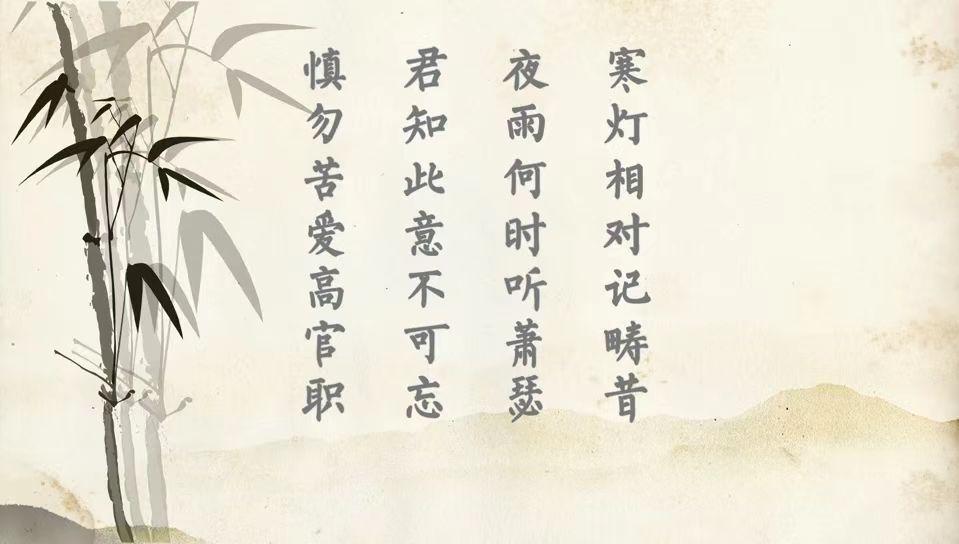 寒灯相对记畴昔
夜雨何时听萧瑟
君知此意不可忘
慎勿苦爱高官职